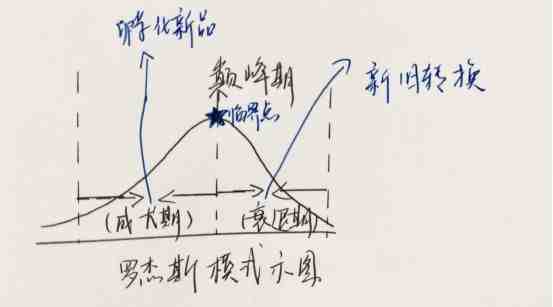 孵化新品
巅峰期
临界点
新旧转换
(成长期)
(衰退期)
罗杰斯模式示图